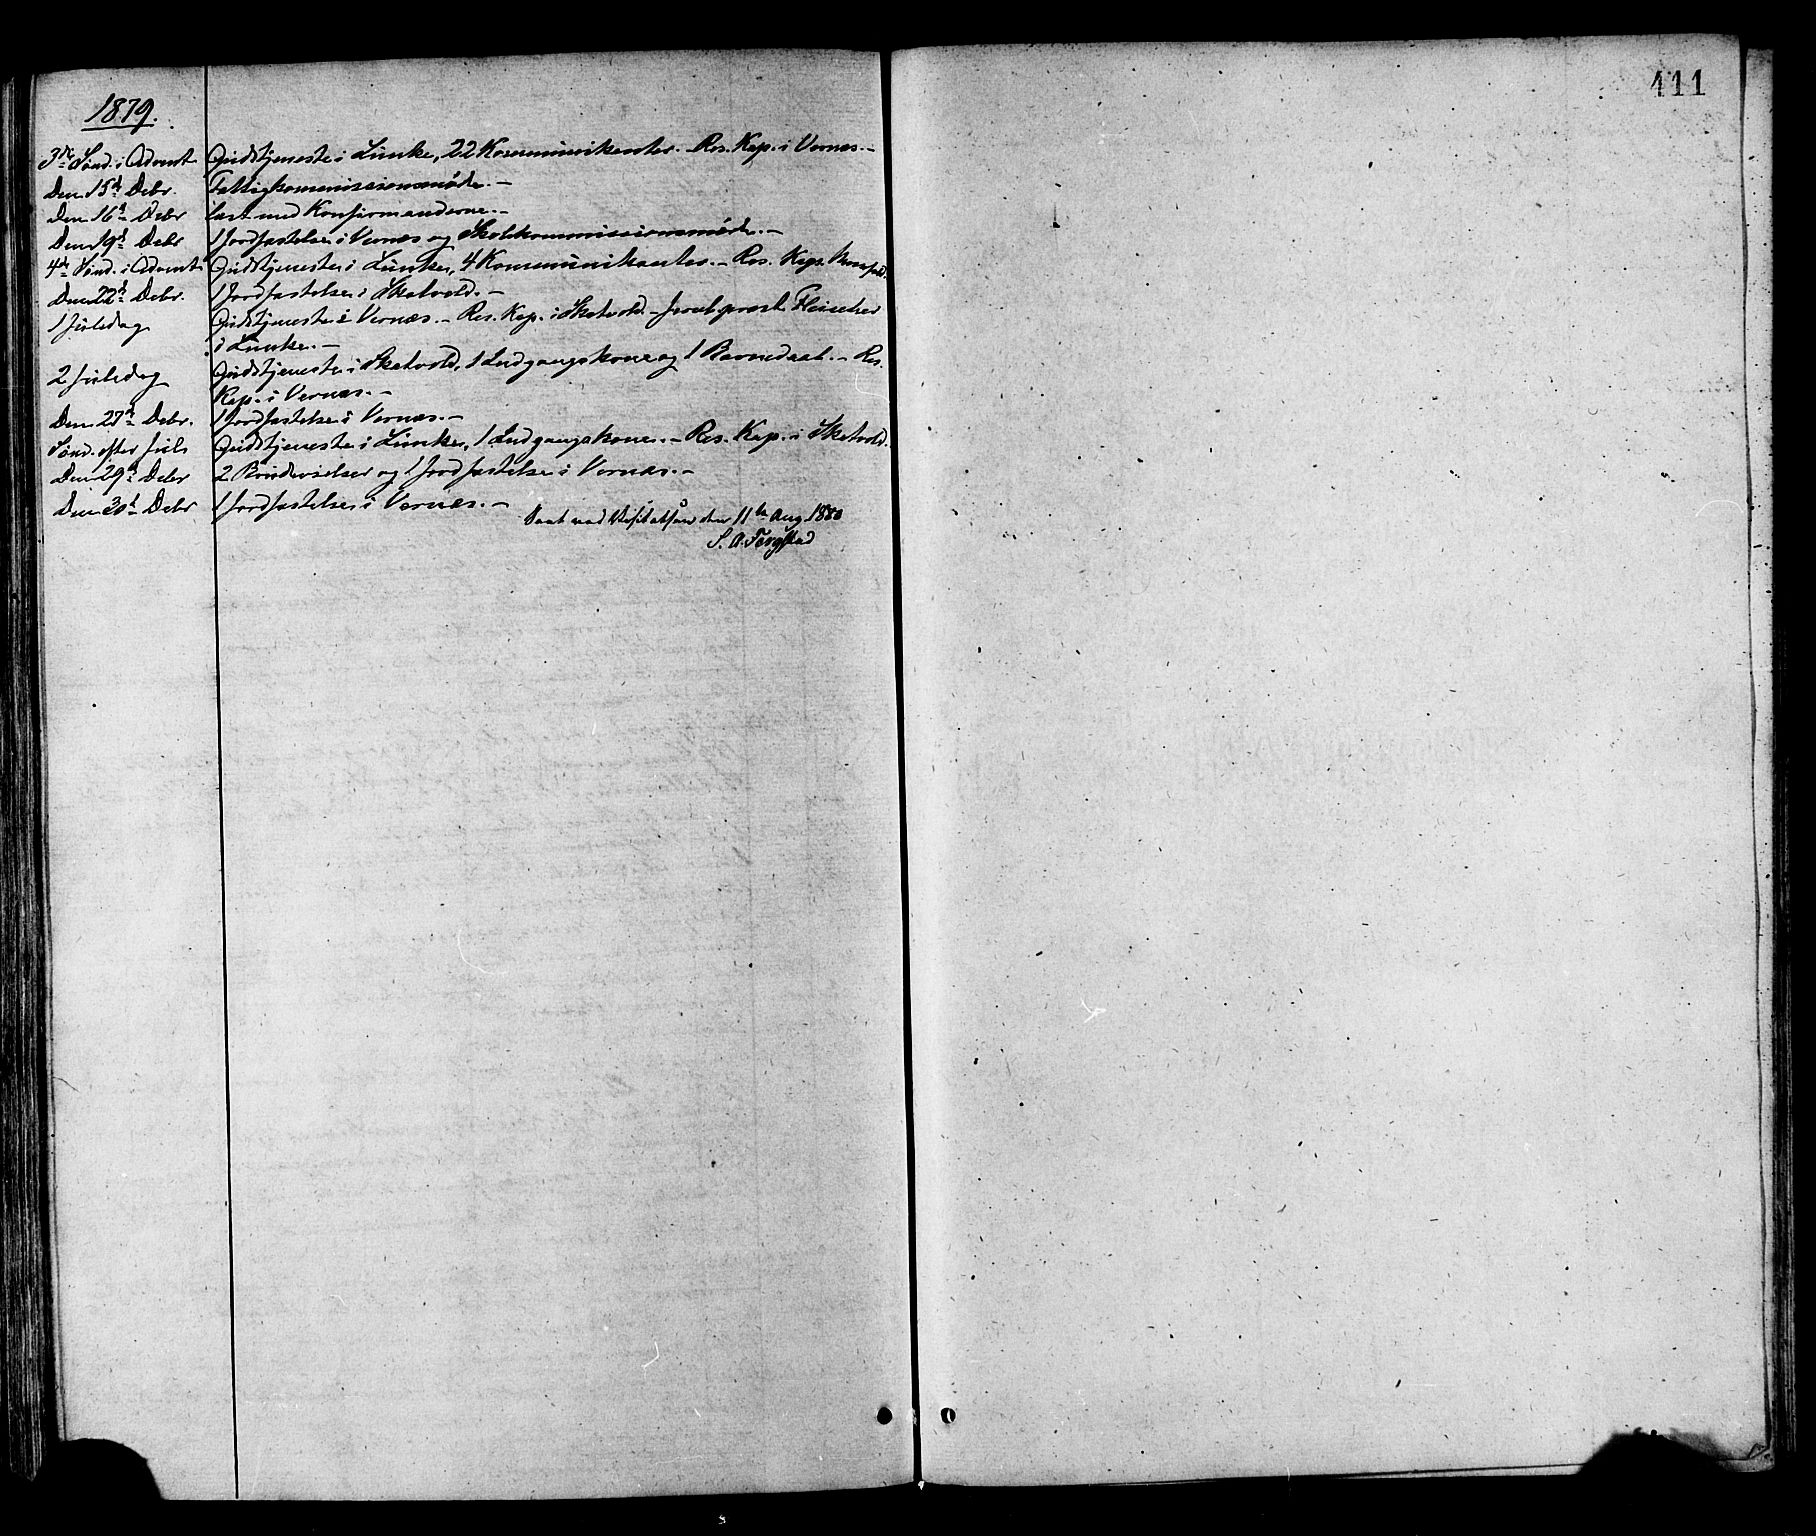 411
1879.
3die Sønd. i Advent Gudstjeneste i Lånke, 22 Kommunikanter. – Res. Kap. i Værnes. –
Den 15de Debr. Fattigkommissionsmøde. –
Den 16de Debr læst med Konfirmanderne. –
Den 19de Debr 1 Jordfæstelse i Værnes og Skolekommissionsmøde. –
4de Sønd. i Advent Gudstjeneste i Lånke, 4 Kommunikanter. – Res. Kap.
Den 22de Debr. 1 Jordfæstelse i Skatvold. –
1 Juledag Gudstjeneste i Værnes. – Res. Kap. i Skatvold. – Fleischer
i Lånke. –
2 Juledag Gudstjeneste i Skatvold, 1 Indgangskone og 1 Barnedaab. – Res.
Kap. i Værnes. –
Den 27de Debr. 1 Jordfæstelse i Værnes. –
Sønd. efter Juls Gudstjeneste i Lånke, 1 Indgangskone. – Res. Kap. i Skatvold.
Den 29de Debr 2 Brudevielser og 1 Jordfæstelse i Værnes. –
Den 30te Debr 1 Jordfæstelse i Værnes. –
Seet ved Visitatsen den 11te Aug. 1880